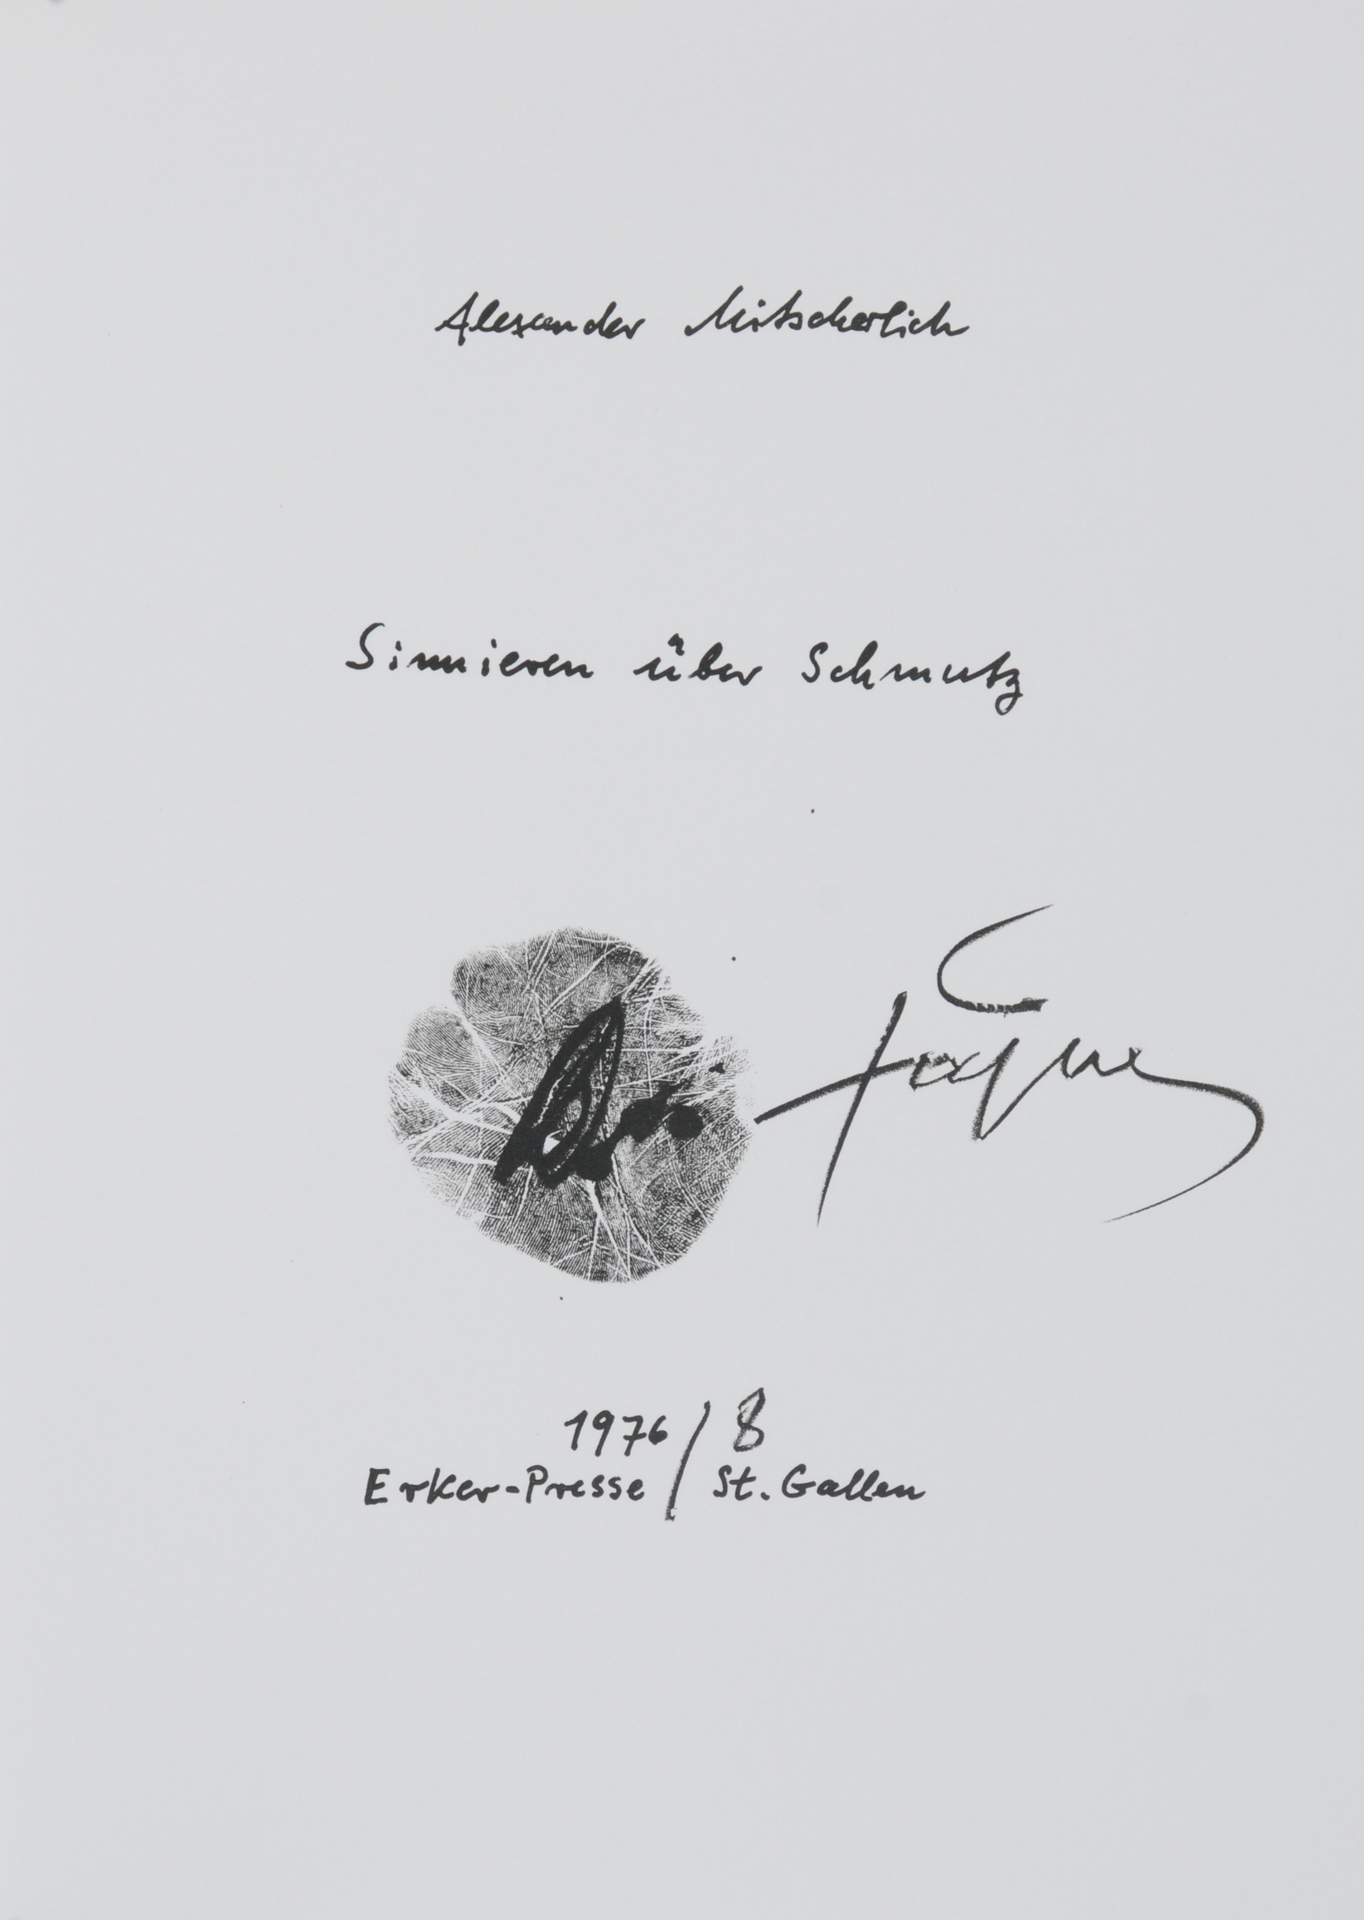 Alexander Mitscherlich
Sinnieren über Schmutz
1976/8
Erker-Presse / St. Gallen